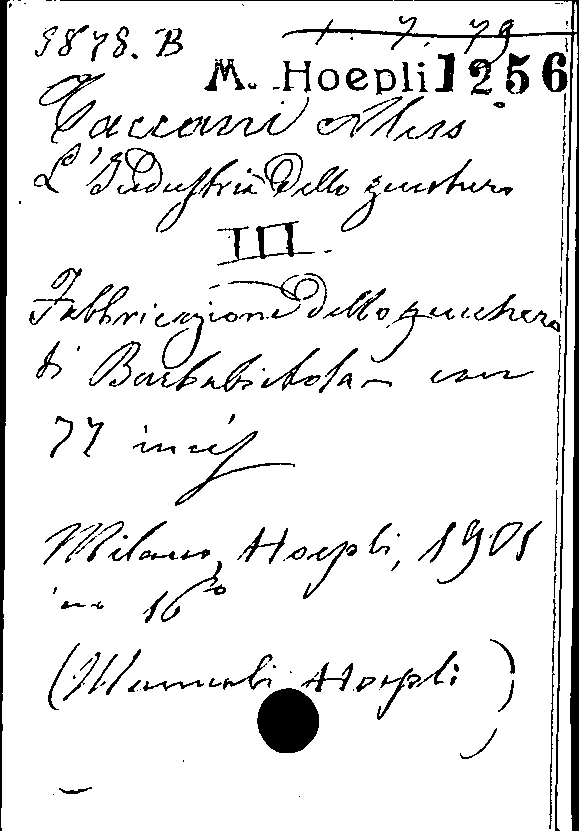 9878. B 1. 7. 79
M. Hoepli 1256
Taccani Aless
L'Industria dello zucchero
III.
Fabbricazione dello zucchero
di Barbabietola - con
77 incis
Milano, Hoepli, 1901
in 16°
(Manuali Hoepli)